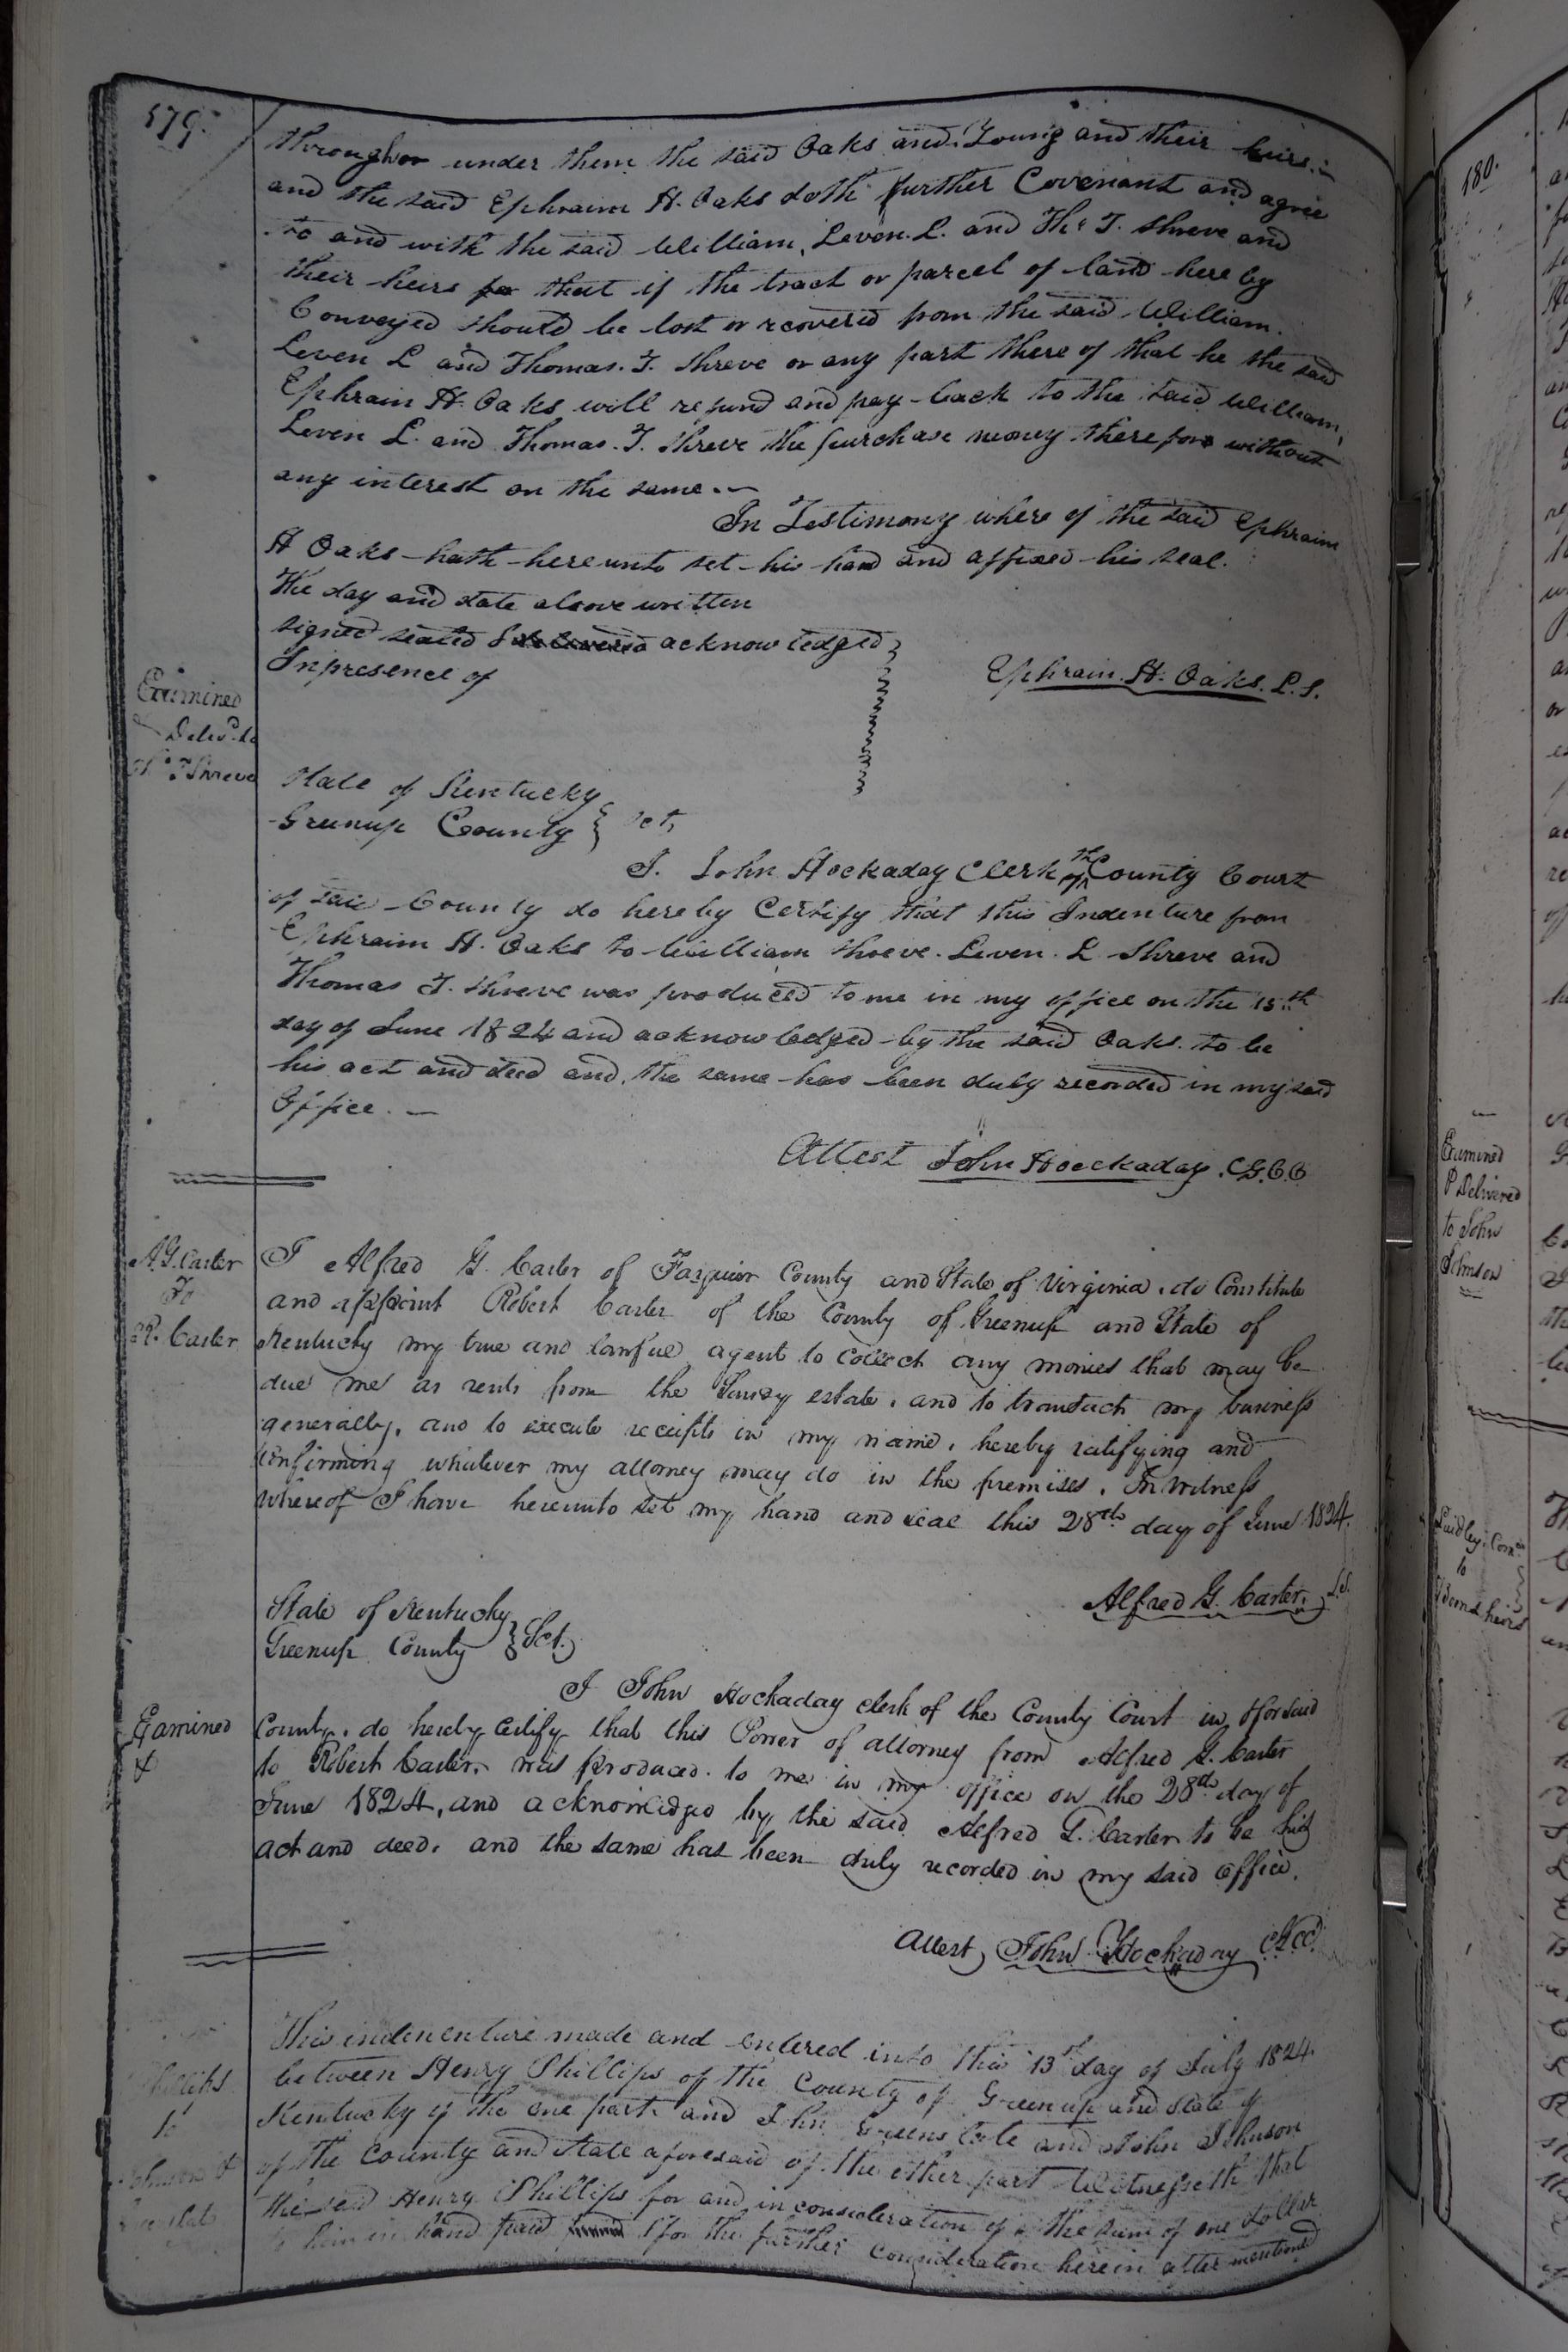 179.
through or under them the said Oaks and Young and their heirs.
and the said Ephraim H. Oaks doth further Covenant and agree
to and with the said William, Leven. L. and Ths T. Shreve and
their heirs that if the tract or parcel of land here by
Conveyed should be lost or recovered from the said William.
Leven L and Thomas. T. Shreve or any part there of that he the said
Ephraim H. Oaks will refund and pay back to the said William,
Leven L. and Thomas. T. Shreve the purchase money there for without
any interest on the same. —
In Testimony where of the said Ephraim
H Oaks hath here unto set his hand and affixed his seal.
The day and date above written
signed sealed & delivered acknowledged
In presence of
Ephraim. H. Oaks. L.S.
Examined
Deliv.d to
Th. T Shreve
State of Kentucky
Greenup County } sct,
I. John Hockaday Clerk of the County Court
of said County do hereby Certify that this Indenture from
Ephraim H. Oaks to William Shreve. Leven. L Shreve and
Thomas T. Shreve was produced to me in my office on the 15th
day of June 1824 and acknowledged by the said Oaks. to be
his act and deed and the same has been duly recorded in my said
Office. —
Attest John Hockaday. C.G.C.C
A.G. Carter
To
R. Carter
I Alfred G. Carter of Faquier County and State of Virginia. do Constitute
and appoint Robert Carter of the County of Greenup and State of
Kentucky my true and lawful agent to Collect any monies that may be
due me as rents from the estate, and to transact my business
generally, and to execute receipts in my name, hereby ratifying and
Confirming whatever my attorney may do in the premises. In witness
whereof I have hereunto set my hand and seal this 28th day of June 1824.
Alfred G. Carter. L.S.
State of Kentucky
Greenup County } Sct.
Examined
&
I John Hockaday clerk of the County Court in aforsaid
County, do hereby Certify that this Power of attorney from Alfred G. Carter
to Robert Carter, was produced to me in my office on the 28th day of
June 1824, and acknowledged by the said Alfred G. Carter to be his
act and deed. and the same has been duly recorded in my said office.
Attest John Hockaday CGCC
Phillips
to
Johnson &
This indenenture made and entered into this 13th day of July 1824.
between Henry Phillips of the County of Greenup and State of
Kentucky of the one part and John Greenslate and John Johnson
of the County and State aforesaid of the other part Witnesseth that
the said Henry Phillips for and in consideration of the sum of one dollar
to him in hand paid & for the further consideration herein after mentioned
180.
Examined
& Delivered
to John
Johnson
Laidley. Comr
to
heirs